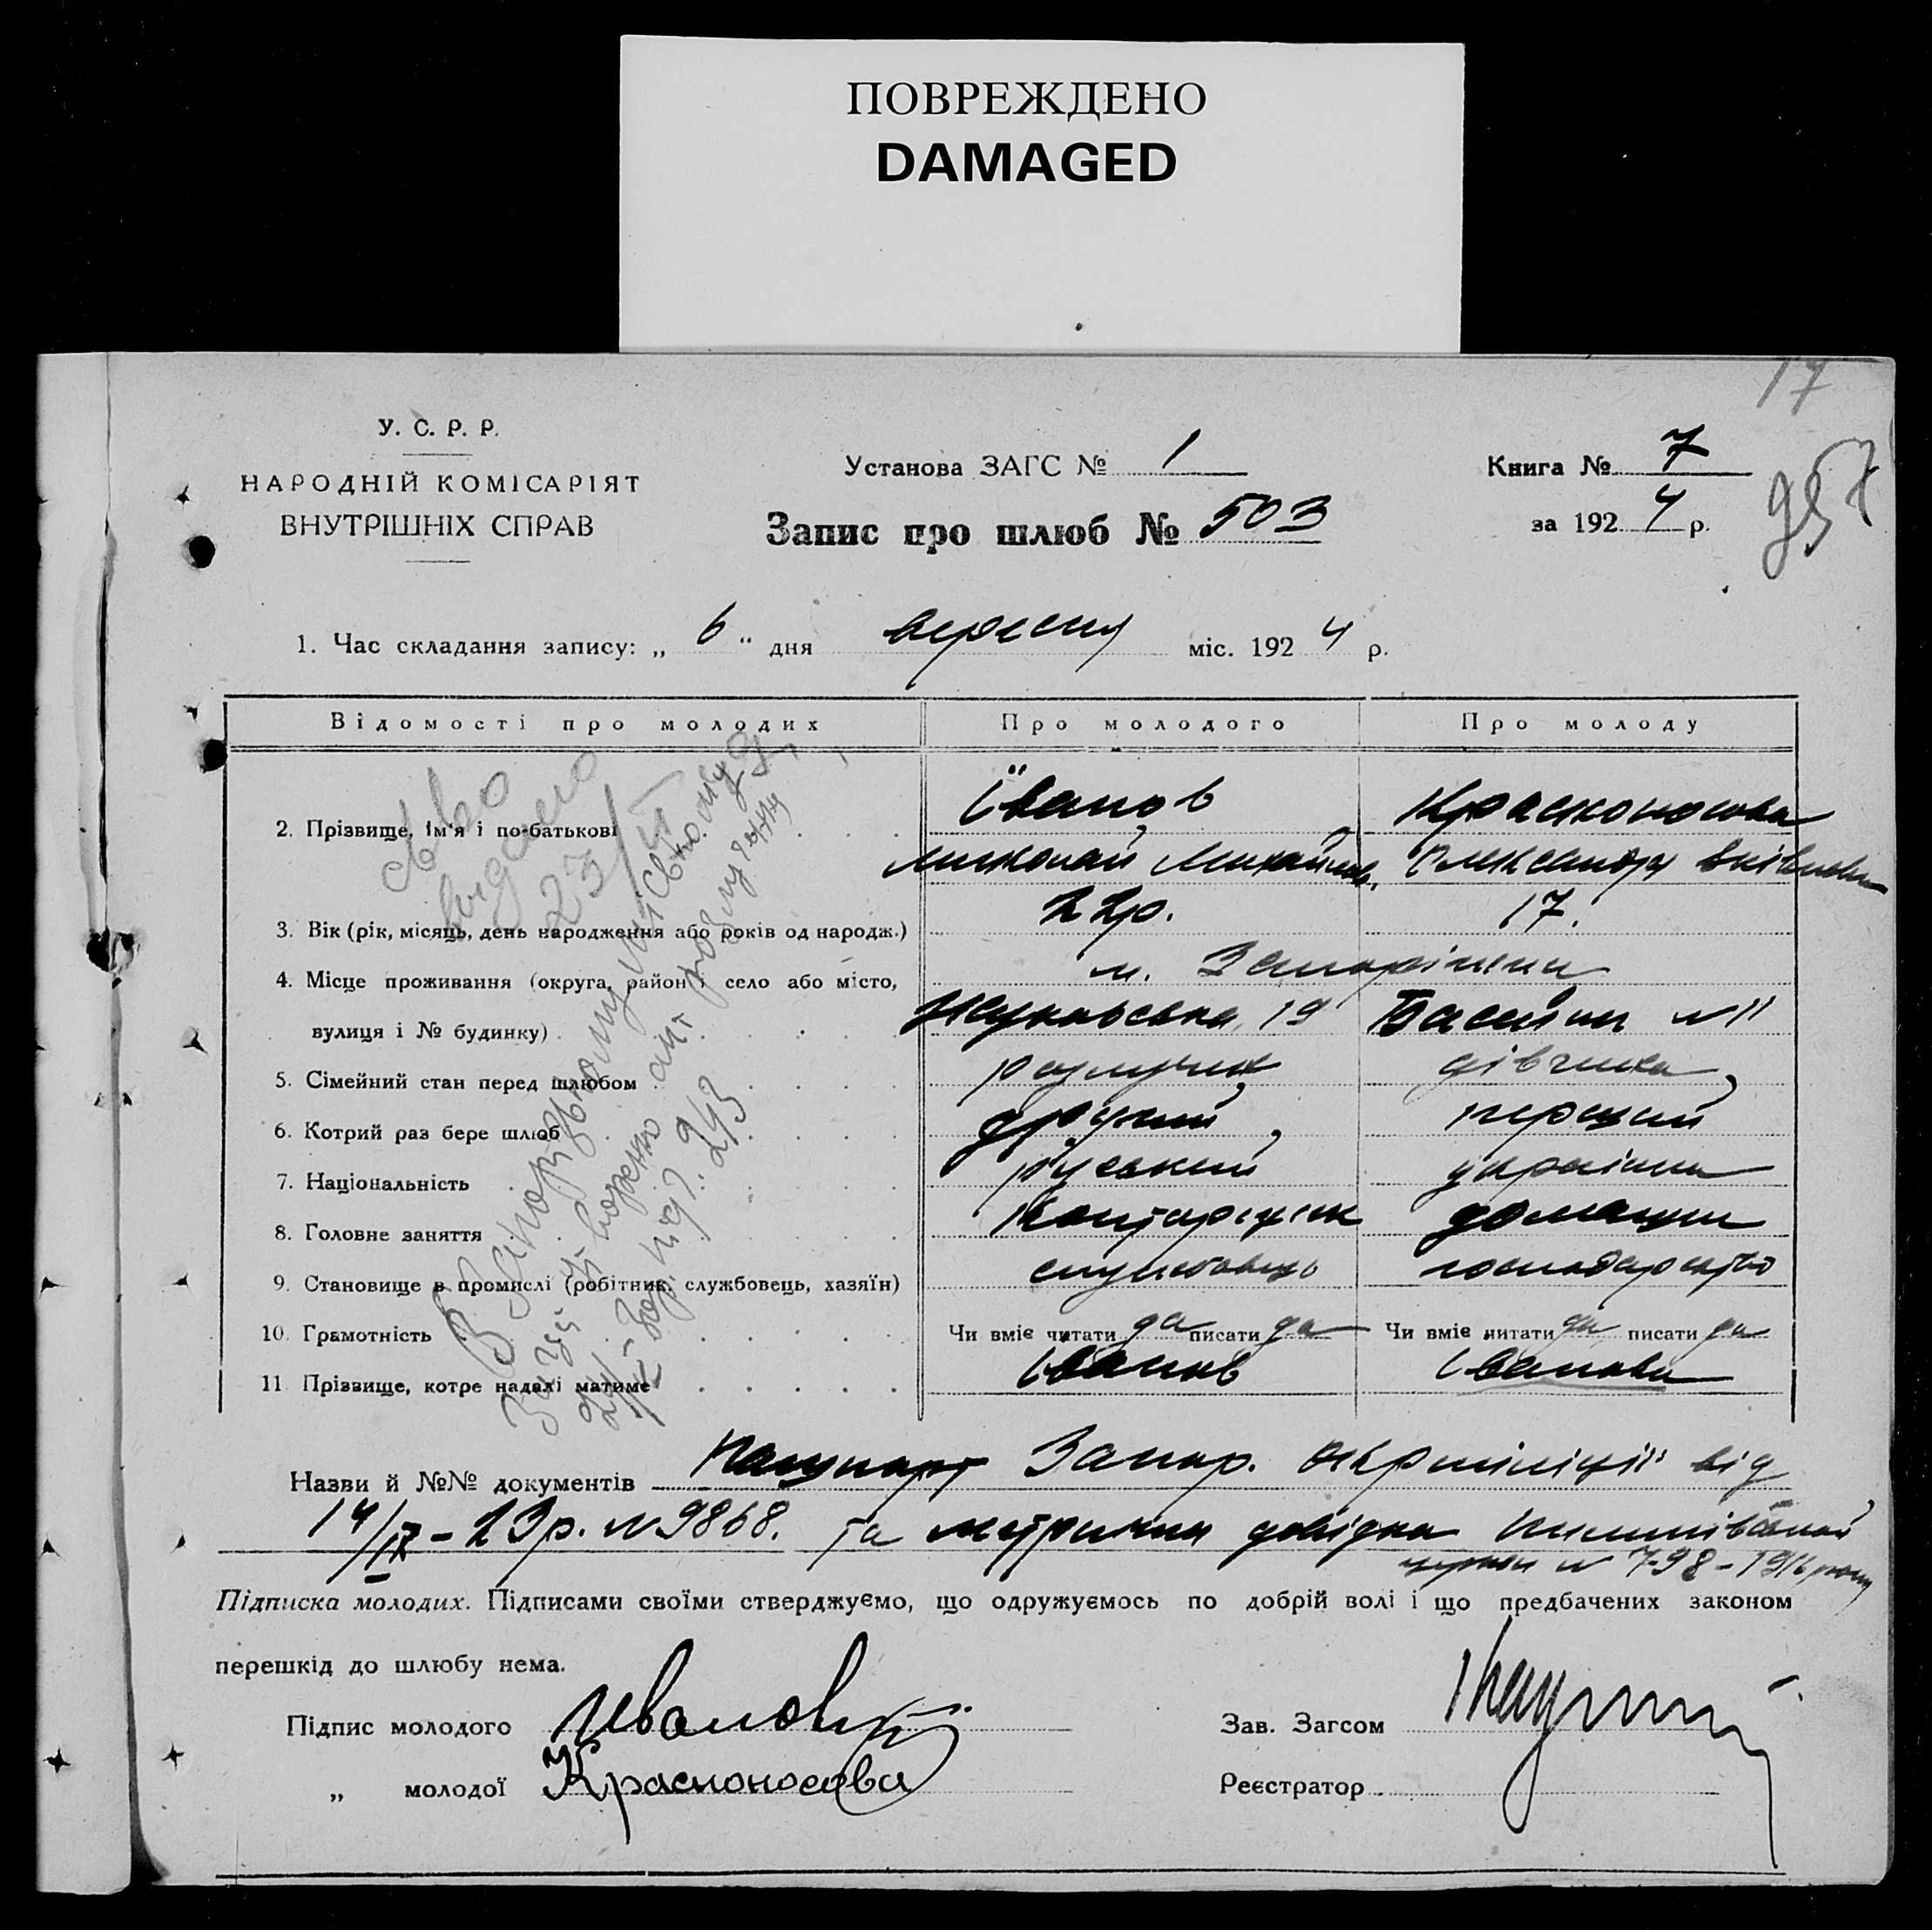 ПОВРЕЖДЕНО
DAMAGED
17
У. С. Р. Р.
НАРОДНІЙ КОМІСАРІЯТ
ВНУТРІШНІХ СПРАВ
Установа ЗАГС № 1
Книга № 7
за 192 4 р.
957
Запис про шлюб № 503
1. Час складання запису: „ 6 “ дня вересня міс. 192 4 р.
Відомості про молодих
Про молодого
Про молоду
2. Прізвище, ім'я і по-батькові
Іванов
Красноносова
Миколай Михайлов.
Олександра
3. Вік (рік, місяць, день народження або років од народж.)
22 р.
17.
4. Місце проживання (округа, район і село або місто,
м. Запоріжжя
вулиця і № будинку)
Жуковська, 19
Басейна № 11
5. Сімейний стан перед шлюбом
розлучен
дівчина
6. Котрий раз бере шлюб
другий
перший
7. Національність
руський
українка
8. Головне заняття
Конторщик
домашнє
9. Становище в промислі (робітник, службовець, хазяїн)
службовець
господарство
10. Грамотність
Чи вміє читати да писати да
Чи вміє читати да писати да
11 Прізвище, котре надалі матиме
Іванов
Іванова
св-во
видано
23/
В Запорізькому міськ.
24/ під 9. 243
Назви й №№ документів Пашпорт Запор. Окрміліції від
14/IX - 23 р. № 9868. та метрична довідка
церкви № 798 - 1916 року
Підписка молодих. Підписами своїми стверджуємо, що одружуємось по добрій волі і що предбачених законом
перешкід до шлюбу нема.
Підпис молодого Иванов
„ молодої Красноносова
Зав. Загсом
Реєстратор